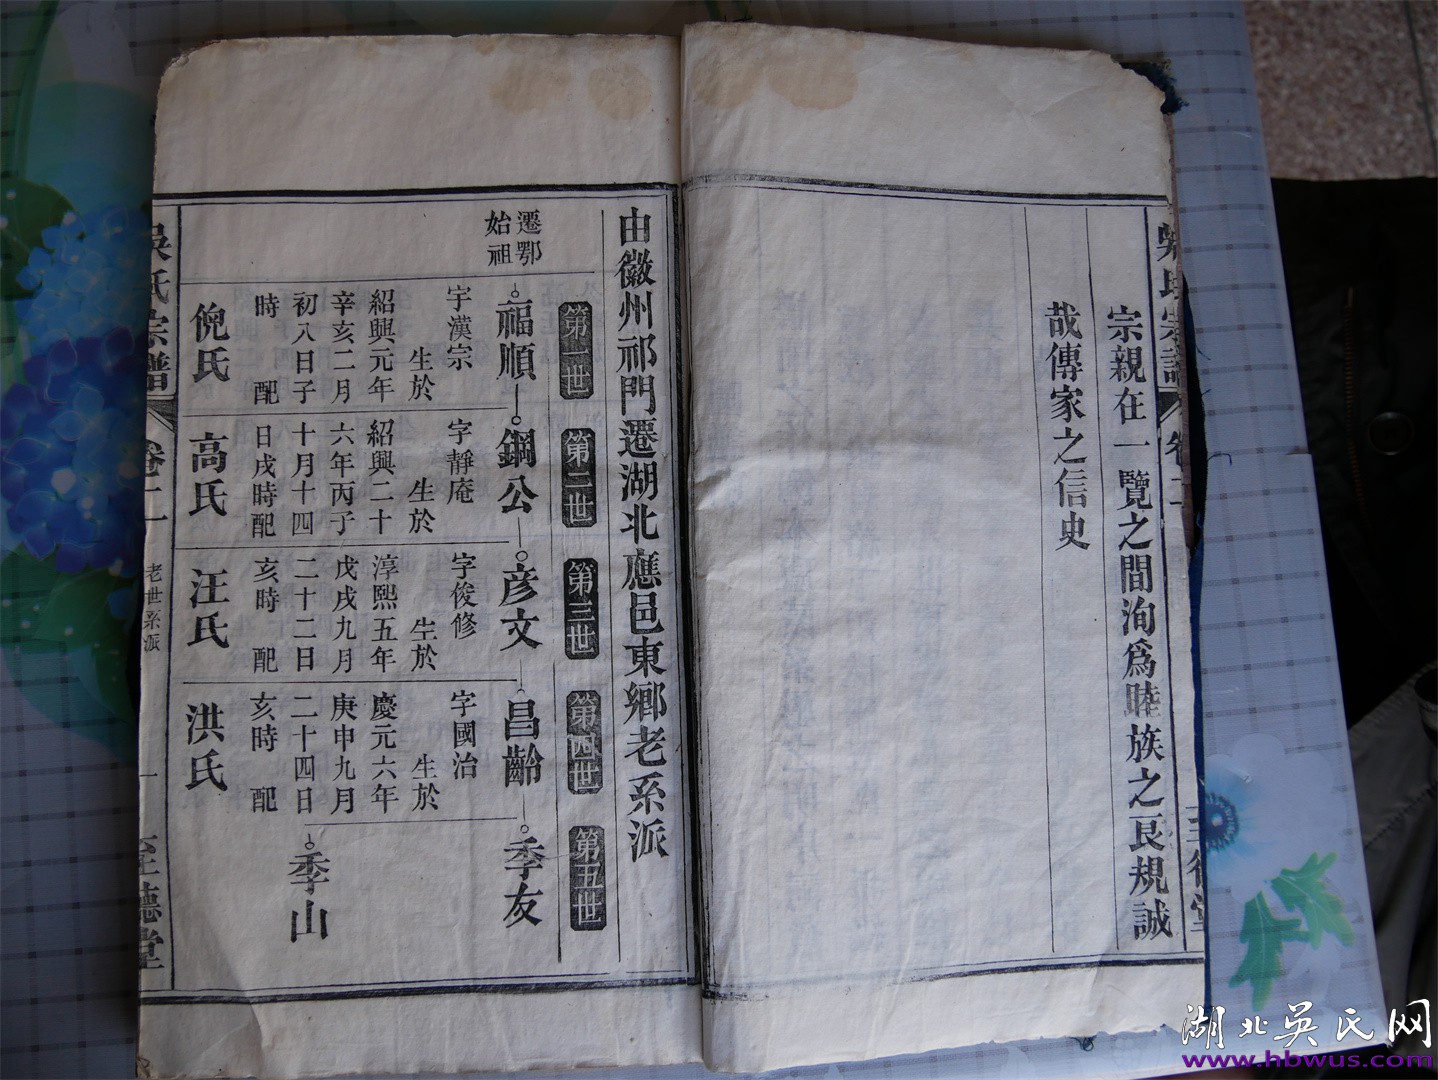 宗親在一覽之間洵為睦族之良規誠
哉傳家之信史
由徽州祁門遷湖北應邑東鄉老系派
第一世
第二世
第三世
第四世
第五世
遷鄂
始祖
福順
字漢宗
生於
紹興元年
辛亥二月
初八日子
時 配
倪氏
鋼公
字靜庵
生於
紹興二十
六年丙子
十月十四
日戌時配
高氏
彦文
字俊修
生於
淳熙五年
戊戌九月
二十二日
亥時 配
汪氏
昌齡
字國治
生於
慶元六年
庚申九月
二十四日
亥時 配
洪氏
季友
季山
吳氏宗譜
卷二
老世系派
一
至德堂
湖北吴氏网
www.hbwus.com